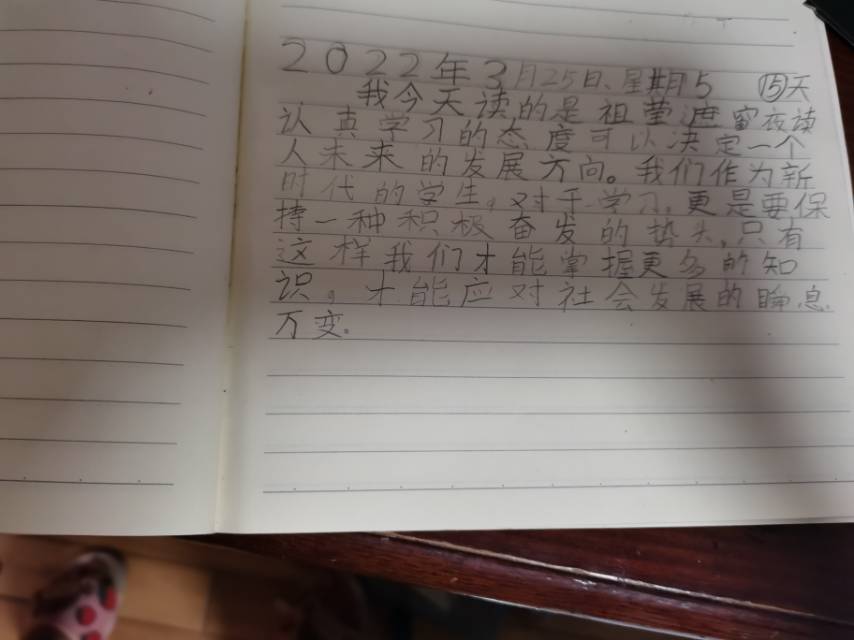 2022年3月25日、星期5 ⑮天
我今天读的是祖莹遮窗夜读
认真学习的态度可以决定一个
人未来的发展方向。我们作为新
时代的学生，对于学习，更是要保
持一种积极奋发的势头，只有
这样我们才能掌握更多的知
识。才能应对社会发展的瞬息
万变。